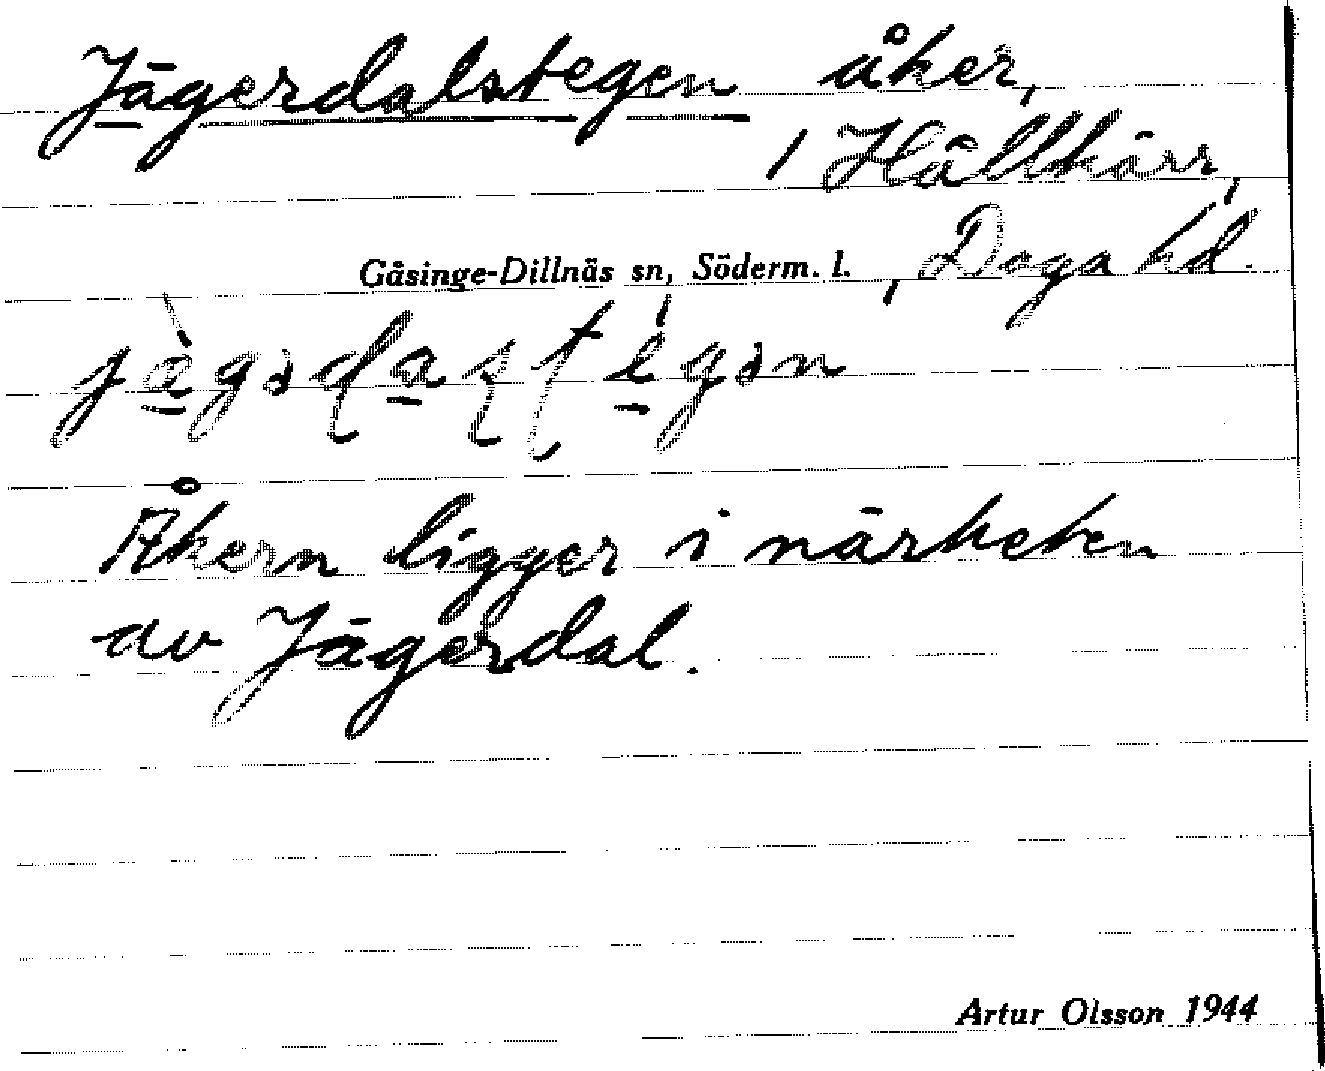 Jägerdalstegen åker,
1 Hällkärr,
Gåsinge-Dillnäs sn, Söderm. l., Daga hd.
Åkern ligger i närheten
av Jägerdal.
Artur Olsson 1944